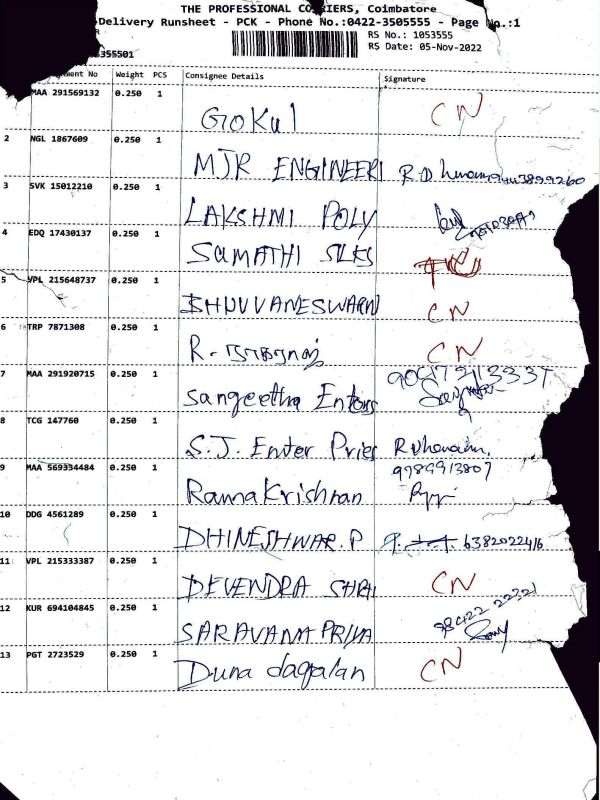 THE PROFESSIONAL COURIERS, Coimbatore
Delivery Runsheet - PCK - Phone No.:0422-3505555 - Page No.:1
RS No.: 1053555
RS Date: 05-Nov-2022
355501
ment No Weight PCS Consignee Details Signature
MAA 291569132 0.250 1 Gokul CN
2 NGL 1867609 0.250 1 MJR ENGINEERI R.D
3 SVK 15012210 0.250 1 LAKSHMI POLY
4 EDQ 17430137 0.250 1 SUMATHI SILKS
5 VPL 215648737 0.250 1 BHUVVANESWARI CN
6 TRP 7871308 0.250 1 R. CN
7 MAA 291920715 0.250 1 Sangeetha Enters
8 TCG 147760 0.250 1 S.J. Enter Pries
9 MAA 569334484 0.250 1 RamaKrishnan 9789913807
10 DDG 4561289 0.250 1 DHINESHWAR.P 6382022416
11 VPL 215333387 0.250 1 DEVENDRA CN
12 KUR 694104845 0.250 1 SARAVANA PRIYA 98422 22321
13 PGT 2723529 0.250 1 Duna dagalan CN